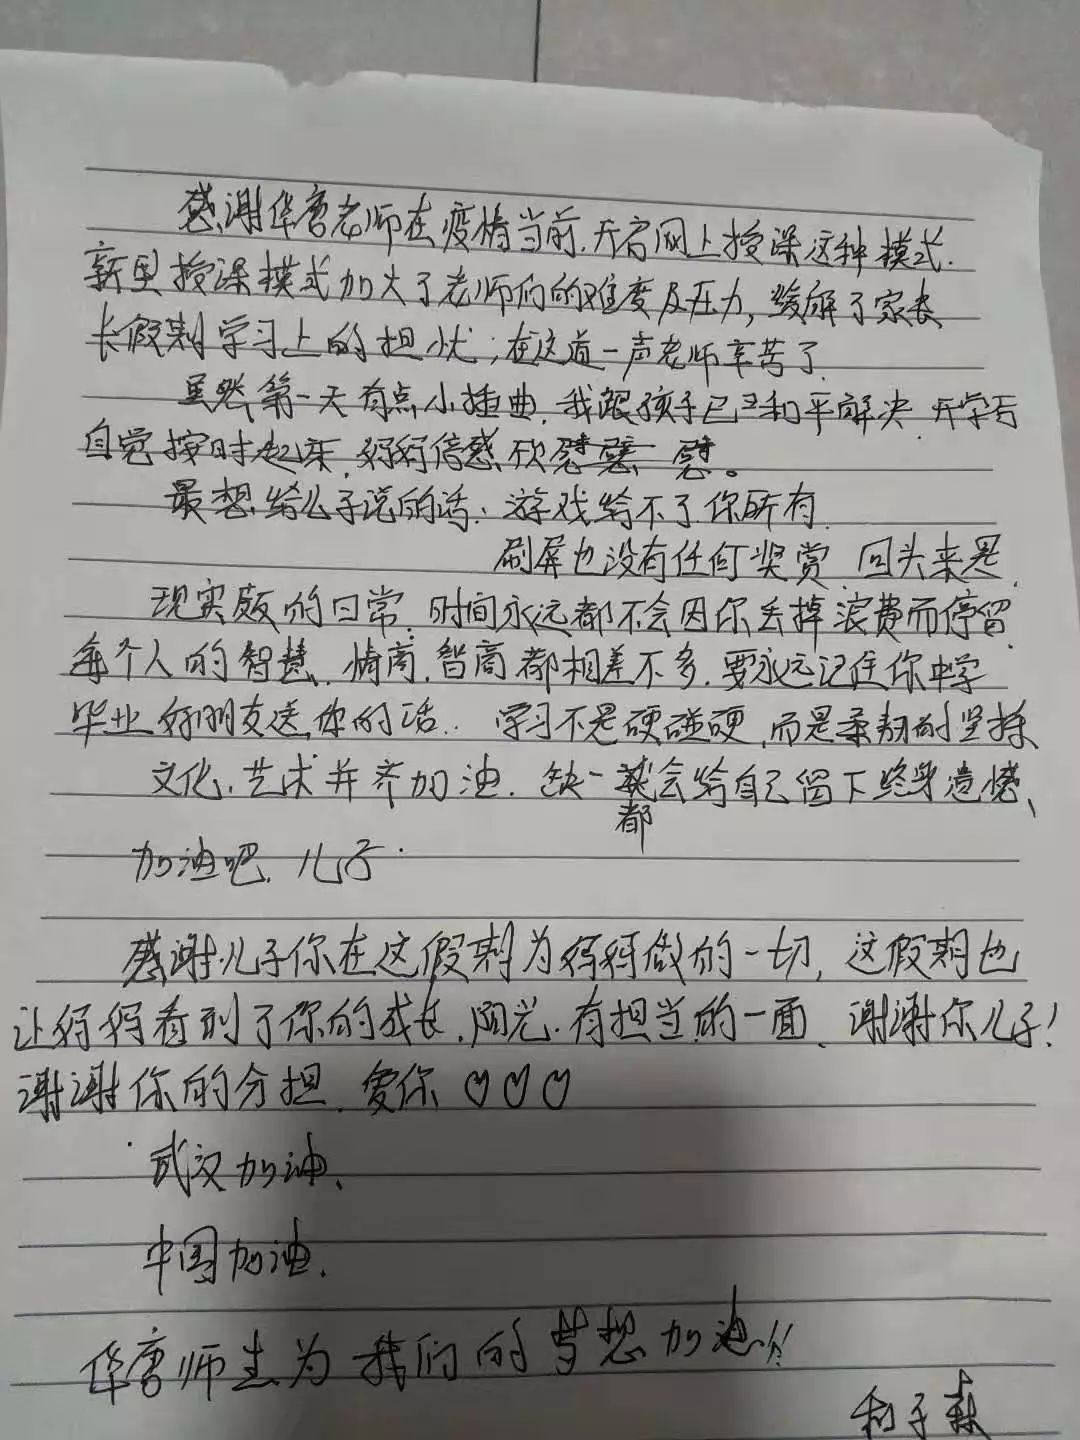 感谢华唐老师在疫情当前.开启网上授课这种模式.
新型授课模式加大了老师们的难度及压力,缓解了家长
长假期学习上的担忧;在这道一声老师辛苦了.
虽然第一天有点小插曲.我跟孩子已和平解决.开学后
自觉按时起床,妈妈倍感欣慰。
最想给儿子说的话:游戏给不了你所有.
刷屏也没有任何奖赏.回头来是.
现实版的日常.时间永远都不会因你丢掉浪费而停留.
每个人的智慧、情商,智商都相差不多.要永远记住你中学
毕业好朋友送你的话..学习不是硬碰硬,而是柔韧耐坚持
文化、艺术并齐加油.缺一都会给自己留下终身遗憾、
加油吧,儿子.
感谢儿子你在这假期为妈妈做的一切,这假期也
让妈妈看到了你的成长,阳光.有担当的一面、谢谢你儿子!
谢谢你的分担.爱你♡♡♡
武汉加油、
中国加油.
华唐师生为我们的梦想加油!!
子森